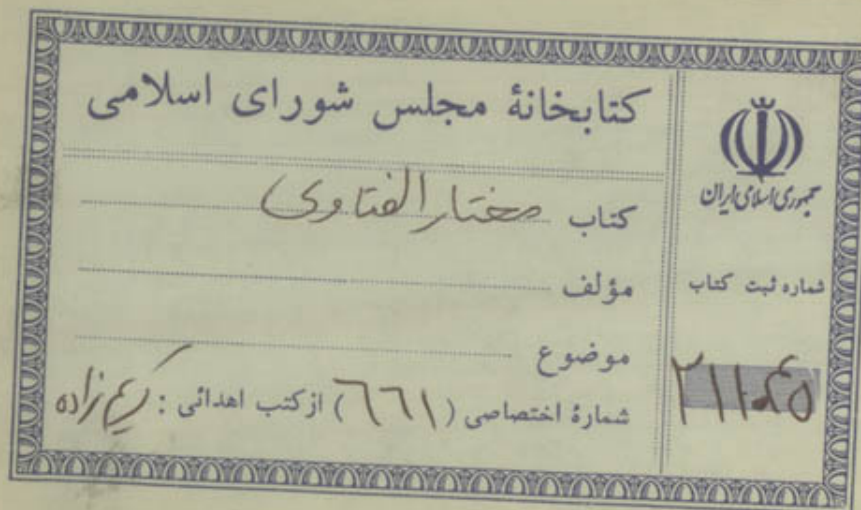 کتابخانهٔ مجلس شورای اسلامی
کتاب مختار الفتاوی
مؤلف
موضوع
شمارهٔ اختصاصی (٦٦١) از کتب اهدائی : کریم‌زاده
جمهوری اسلامی ایران
شماره ثبت کتاب